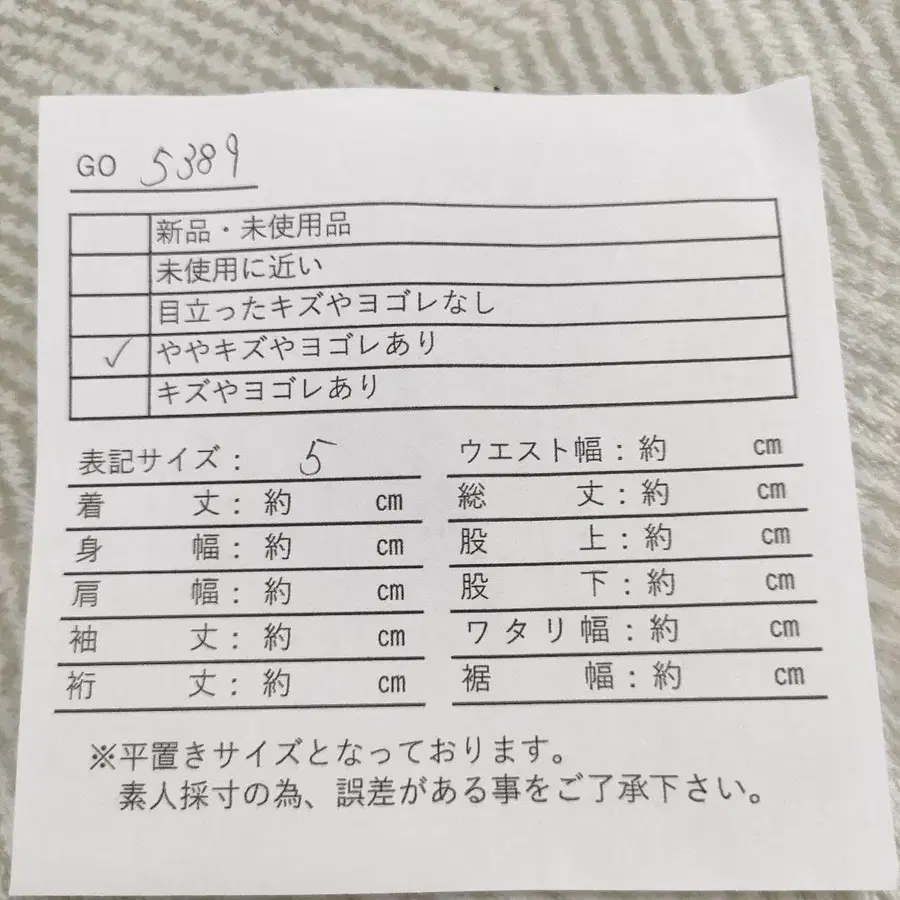 GO 5389
新品・未使用品
未使用に近い
目立ったキズやヨゴレなし
✓ ややキズやヨゴレあり
キズやヨゴレあり
表記サイズ： 5
着丈：約 cm
身幅：約 cm
肩幅：約 cm
袖丈：約 cm
裄丈：約 cm
ウエスト幅：約 cm
総丈：約 cm
股上：約 cm
股下：約 cm
ワタリ幅：約 cm
裾幅：約 cm
※平置きサイズとなっております。
素人採寸の為、誤差がある事をご了承下さい。